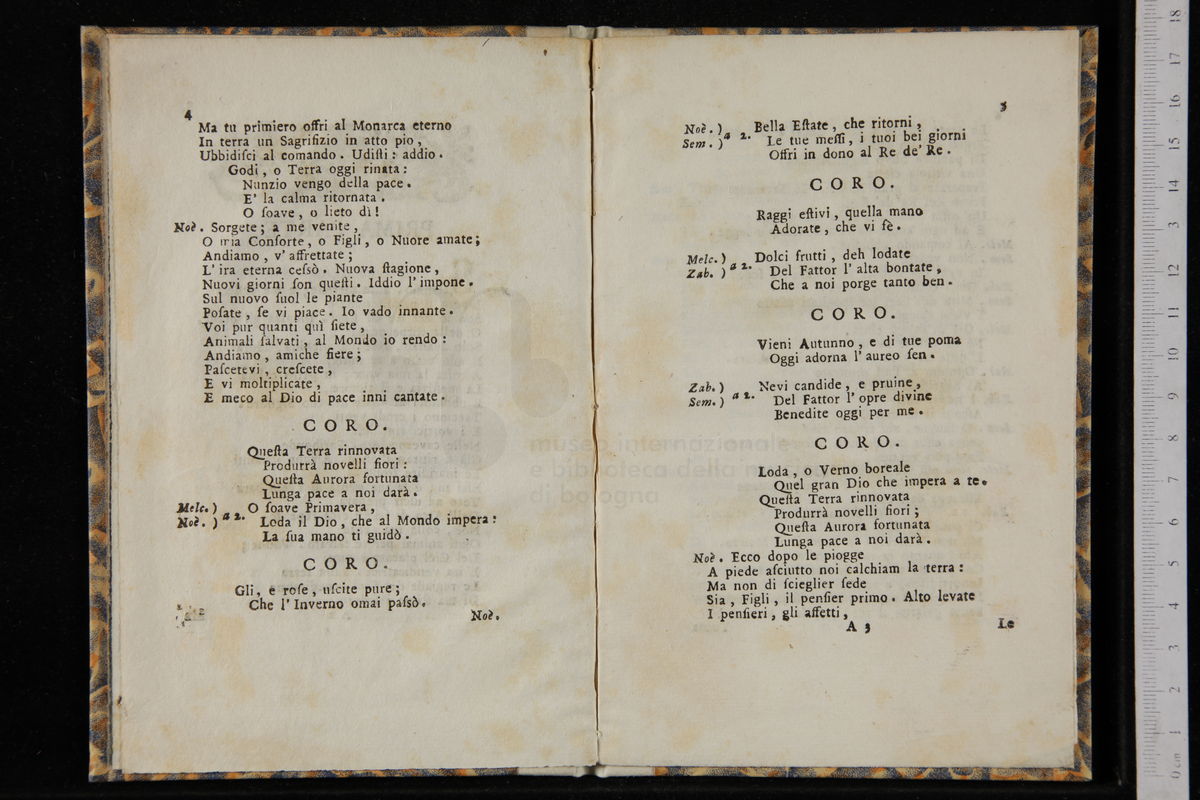 4
Ma tu primiero offri al Monarca eterno
In terra un Sagrifizio in atto pio ,
Ubbidiſci al comando . Udiſti : addio .
Godi , o Terra oggi rinata :
Nunzio vengo della pace .
E' la calma ritornata .
O ſoave , o lieto dì !
Noè . Sorgete ; a me venite ,
O mia Conſorte , o Figli , o Nuore amate ;
Andiamo , v' affrettate ;
L' ira eterna ceſsò . Nuova ſtagione ,
Nuovi giorni ſon queſti . Iddio l' impone .
Sul nuovo ſuol le piante
Poſate , ſe vi piace . Io vado innante .
Voi pur quanti quì ſiete ,
Animali ſalvati , al Mondo io rendo :
Andiamo , amiche fiere ;
Paſcetevi , creſcete ,
E vi moltiplicate ,
E meco al Dio di pace inni cantate .
CORO .
Queſta Terra rinnovata
Produrrà novelli fiori :
Queſta Aurora fortunata
Lunga pace a noi darà .
Melc. ) O ſoave Primavera ,
Noè . ) a 2. Loda il Dio , che al Mondo impera :
La ſua mano ti guidò .
CORO .
Gli , e roſe , uſcite pure ;
Che l' Inverno omai paſsò .
Noè .
5
Noè . ) Bella Eſtate , che ritorni ,
Sem . ) a 2. Le tue meſſi , i tuoi bei giorni
Offri in dono al Re de' Re .
CORO .
Raggi eſtivi , quella mano
Adorate , che vi fè .
Melc. ) Dolci frutti , deh lodate
Zab. ) a 2. Del Fattor l' alta bontate ,
Che a noi porge tanto ben .
CORO .
Vieni Autunno , e di tue poma
Oggi adorna l' aureo ſen .
Zab. ) Nevi candide , e pruine ,
Sem. ) a 2. Del Fattor l' opre divine
Benedite oggi per me .
CORO .
Loda , o Verno boreale
Quel gran Dio che impera a te .
Queſta Terra rinnovata
Produrrà novelli fiori ;
Queſta Aurora fortunata
Lunga pace a noi darà .
Noè . Ecco dopo le piogge
A piede aſciutto noi calchiam la terra :
Ma non di ſcieglier ſede
Sia , Figli , il penſier primo . Alto levate
I penſieri , gli affetti ,
A 3
Le
museo internazionale
e biblioteca della m
di bologna
0 cm 1 2 3 4 5 6 7 8 9 10 11 12 13 14 15 16 17 18